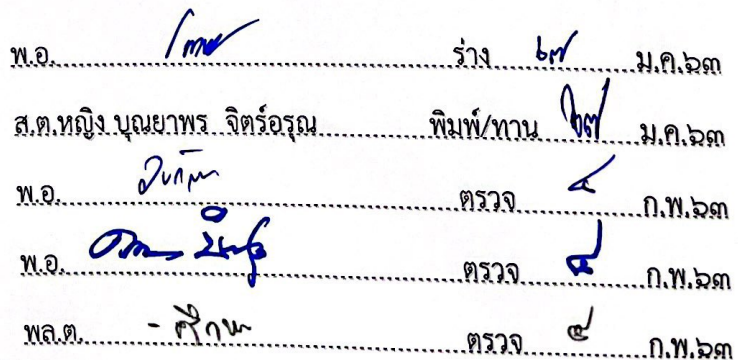 พ.อ. ร่าง ๒๗ ม.ค.๖๓
ส.ต.หญิง บุณยาพร จิตร์อรุณ พิมพ์/ทาน ๒๗ ม.ค.๖๓
พ.อ. ตรวจ ๔ ก.พ.๖๓
พ.อ. ตรวจ ๔ ก.พ.๖๓
พล.ต. ตรวจ ๔ ก.พ.๖๓